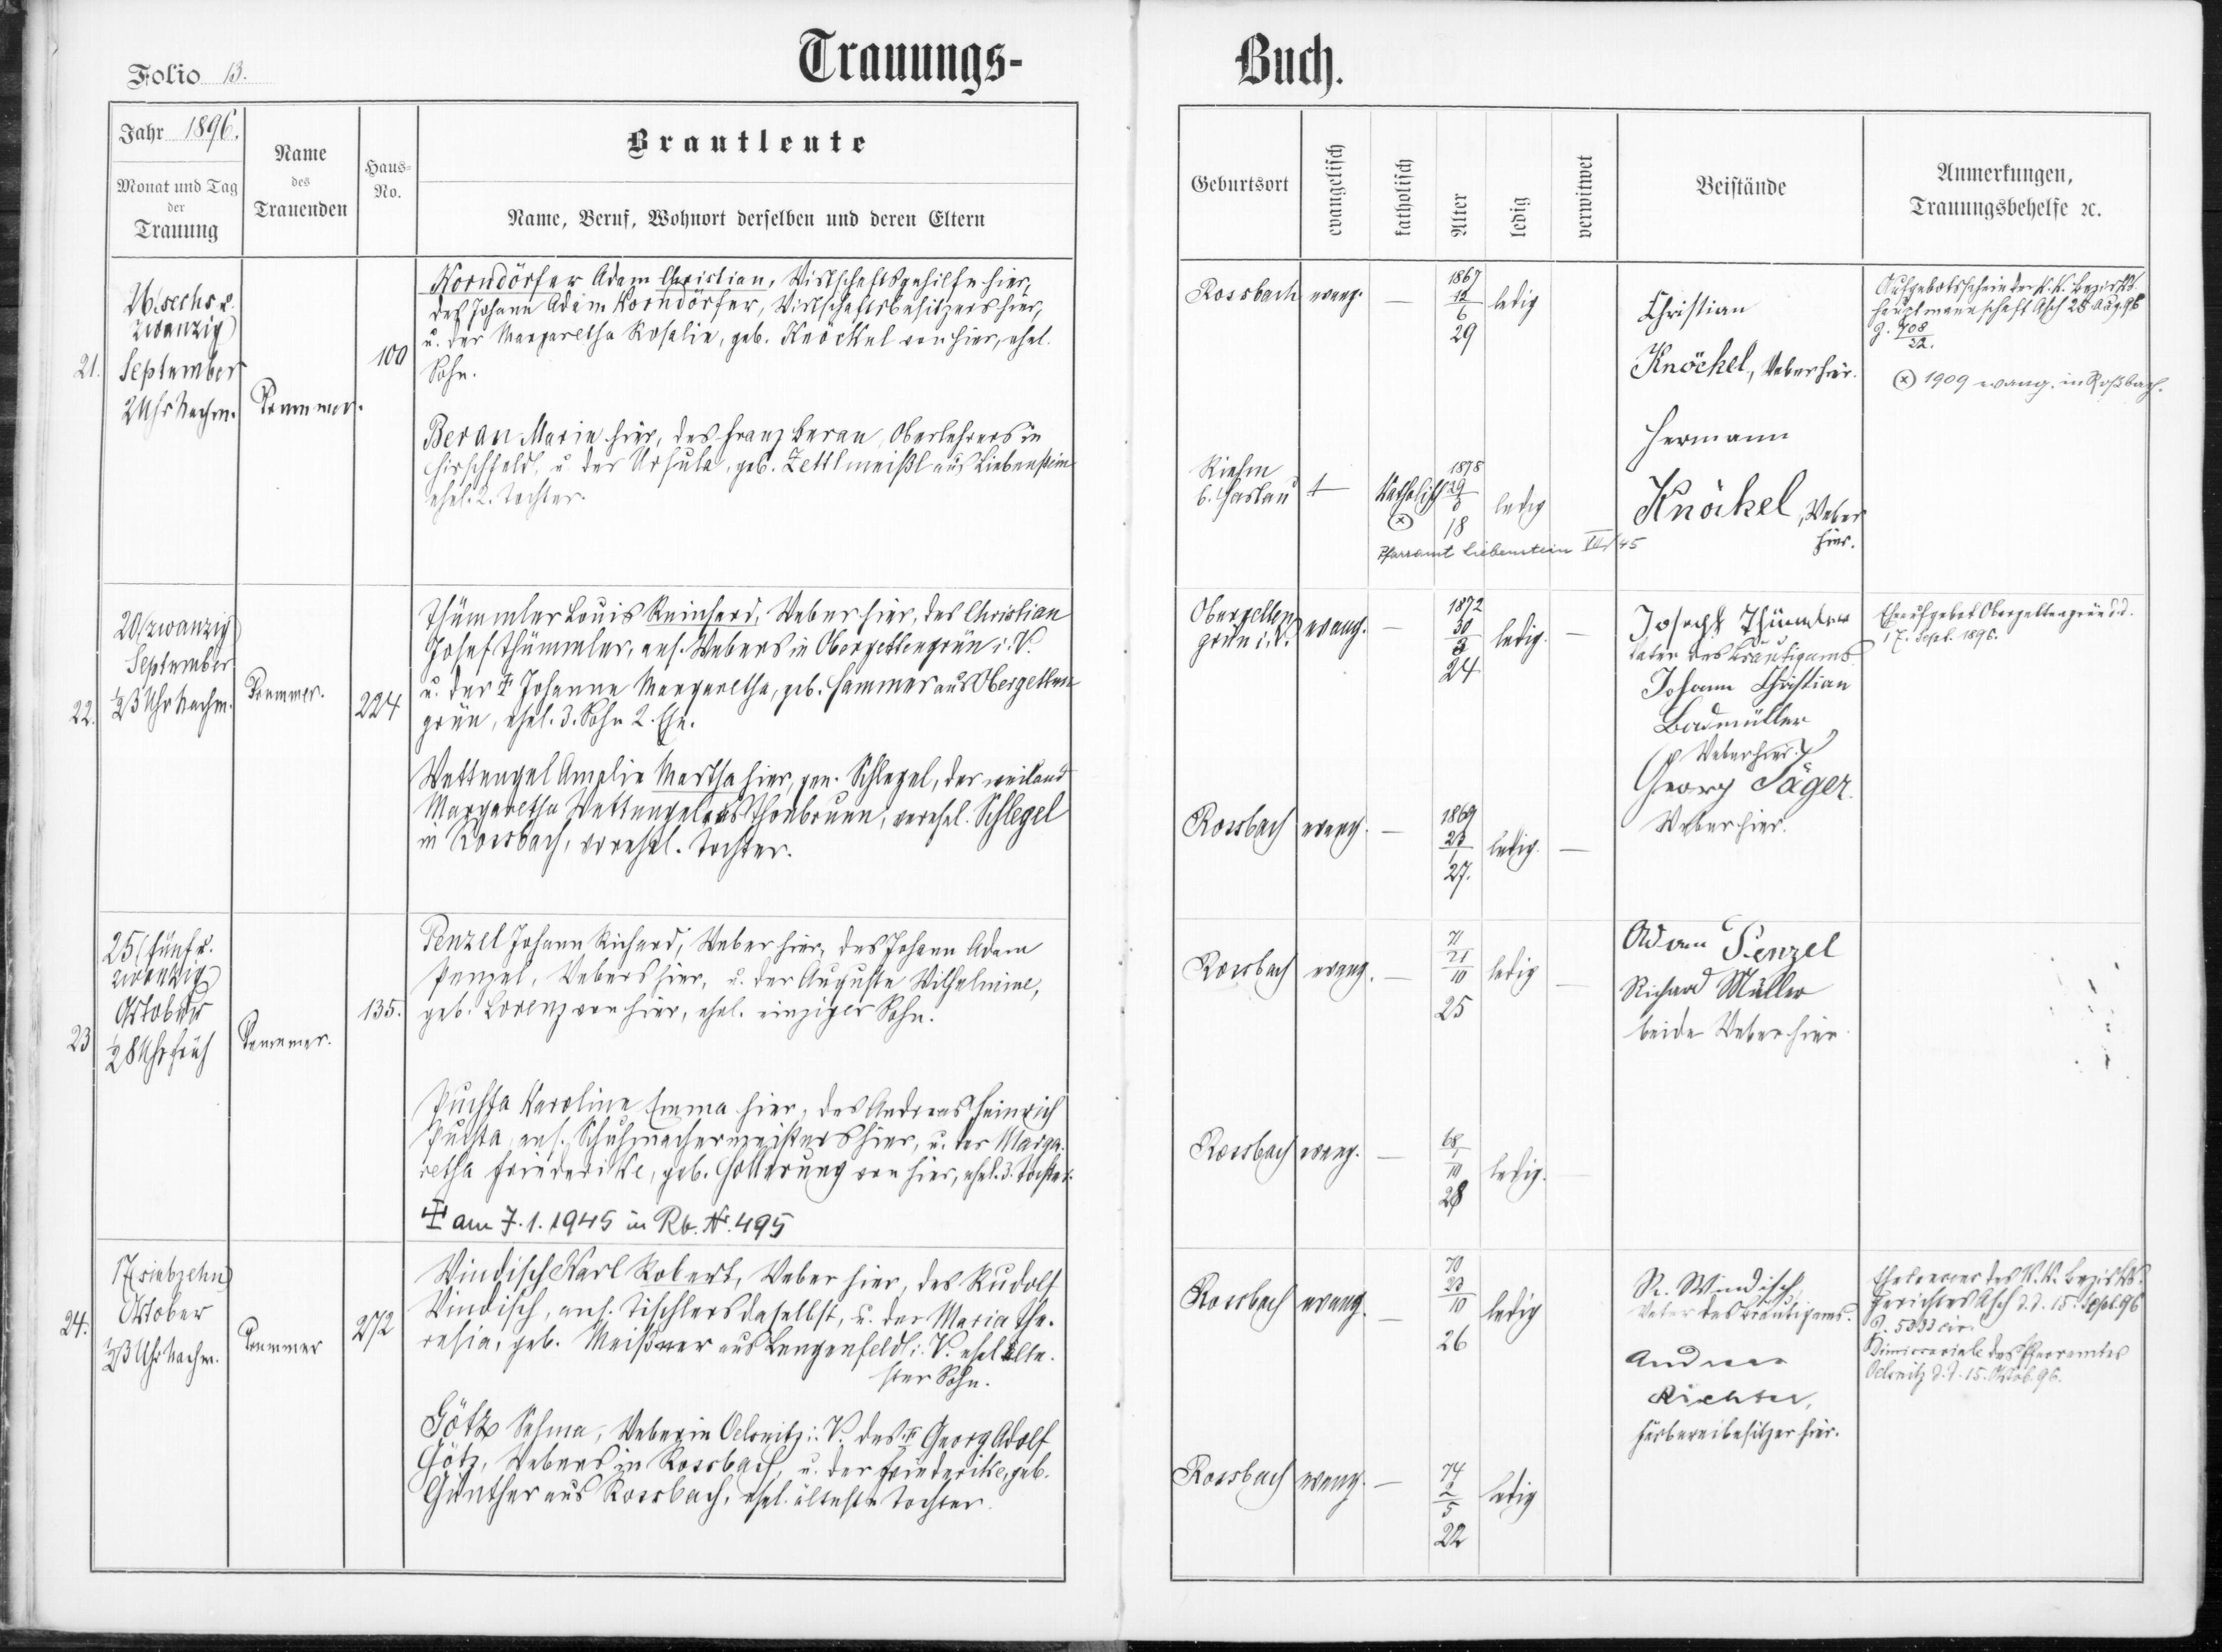 Folio 13.
Trauungs-
Jahr 1896.
Monat und Tag
der
Trauung
Name
des
Trauenden
Haus-
No.
Brautleute
Name, Beruf, Wohnort derselben und deren Eltern
21.
26/sechs u.
zwanzig)
September
2 Uhr Nachm.
Pommer.
100
Korndörfer Adam Christian, Wirtschaftsgehilfe hier,
des Johann Adam Korndörfer, Wirtschaftsbesitzers hier,
u. der Margaretha Rosalie, geb. Knöckel von hier, ehel.
Sohn.
Beran Marie hier, des Franz Beran, Oberlehrers in
Hirschfeld, u. der Ursula, geb. Zettlmeißl aus Liebenstein
ehel. 2. Tochter.
22.
20/zwanzig)
September
½3 Uhr Nachm.
Pommer.
224
Thümmler Louis Reinhard, Weber hier, des Christian
Josef Thümmler, ans. Webers in Obergettengrün i. V.
u. der ✝ Johanne Margaretha, geb. Hammer aus Obergetten
grün, ehel. 3. Sohn 2. Ehe.
Wettengel Amalie Martha hier, gen. Schlegel, der weiland
Margaretha Wettengel aus Thonbrunn, verehel. Schlegel
in Rossbach, vorehel. Tochter.
23
25/fünf u.
zwanzig)
Oktober
½8 Uhr früh
Pommer.
135.
Penzel Johann Richard, Weber hier, des Johann Adam
Penzel, Webers hier, u. der Auguste Wilhelmine,
geb. Lorenz von hier, ehel. einziger Sohn.
Puchta Karoline Emma hier, des Andreas Heinrich
Puchta, ans. Schuhmachermeisters hier, u. der Marga-
retha Friederike, geb. Hollerung von hier, ehel. 3. Tochter.
✝ am 7.1.1945 in Rb. Nr. 495
24.
17(siebzehn)
Oktober
½3 Uhr Nachm.
Pommer
272
Windisch Karl Robert, Weber hier, des Rudolf
Windisch, ans. Tischlers daselbst, u. der Maria The-
resia, geb. Meißner aus Lengenfeld i. V. ehel. älte-
ster Sohn.
Götz Selma, Weberin Oelsnitz i. V. des ✝ Georg Adolf
Götz, Webers in Rossbach, u. der Friederike, geb.
Günther aus Rossbach, ehel. älteste Tochter.
Buch.
Geburtsort
evangelisch
katholisch
Alter
ledig
verwitwet
Beistände
Anmerkungen,
Trauungsbehelfe ꝛc.
Rossbach evang. —
1867
12
6
29
ledig
Christian
Knöckel, Weber hier.
Hermann
Knöckel, Weber
hier.
Aufgebotsschein der k. k. Bezirks-
hauptmannschaft Asch 28 Aug. 96
1909 evang. in Roßbach.
b. Haslau
katholisch
1878
18
ledig
Pfarramt Liebenstein
Obergetten
grün i. V. evang. —
1872
30
3
24
ledig. —
Joseph Thümler
Vater des Bräutigams
Johann Christian
Badmüller
Weber hier.
Georg Jäger.
Weber hier.
Eheaufgebot Obergettengrün d.d.
17. Sept. 1896.
Rossbach evang. —
1869
23
1
27.
ledig. —
Rossbach evang. —
71
21
10
25
ledig —
Adam Penzel
Richard Müller
beide Weber hier
Rossbach evang. —
68
1
10
28
ledig. —
Rossbach evang. —
70
23
10
26
ledig
R. Windisch
Vater des Bräutigams.
Andreas
Richter,
Färbereibesitzer hier.
Ehekonsens des k. k. Bezirks-
gerichtes Asch d. d. 15. Sept. 96
Dimissoriale des Pfarramtes
Oelsnitz d. d. 15. Oktob. 96.
Rossbach evang. —
74
2
5
22
ledig